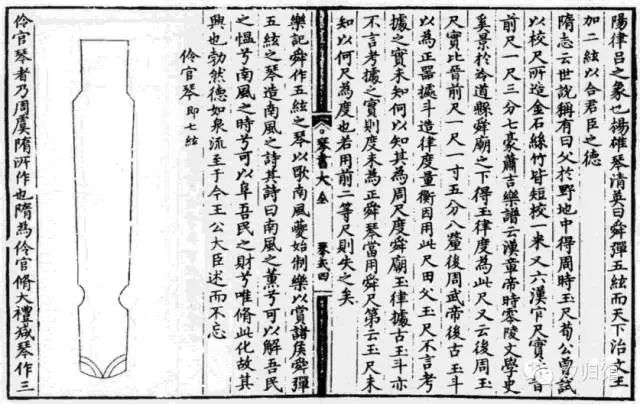 陽律呂之象也揚雄琴清英曰舜彈五絃而天下治文王
加二絃以合君臣之德
隋志云世說稱有田父於野地中得周時玉尺荀公曾試
以校尺所造金石絲竹皆短校一米又六漢官尺實
前尺一尺三分七豪蕭吉樂譜云漢章帝時零陵文學史
奚景於泠道縣舜廟之下得玉律度為此尺又云後周玉
尺實比晉前尺一尺一寸五分八釐後周武帝後古玉斗
以為正器據斗造律度量衡因用此尺田父玉尺不言考
據之實未知何以知其為周尺度舜廟玉律據古玉斗亦
不言考據之實則度未為正舜琴當用舜尺第云玉尺未
知以何尺為度也若用前二等尺則失之矣
琴書大全
琴式四
樂記舜作五絃之琴以歌南風夔始制樂以賞諸侯舜彈
五絃之琴造南風之詩其詩曰南風之薰兮可以解吾民
之慍兮南風之時兮可以阜吾民之財兮唯脩此化故其
興也勃然德如泉流至于今王公大臣述而不忘
伶官琴即七絃
伶官琴者乃周虞隋所作也隋為伶官脩大禮咸琴作三